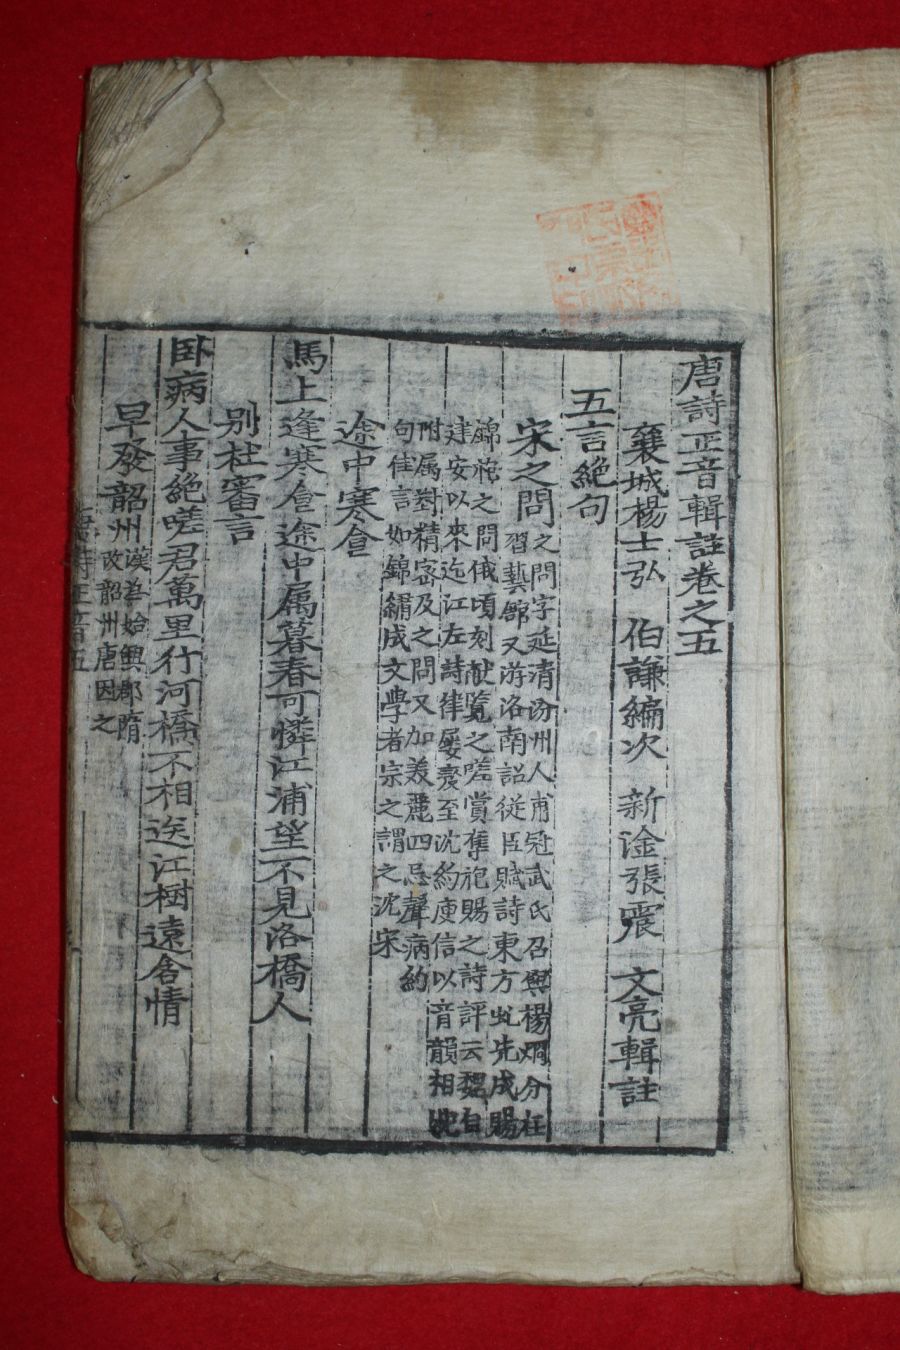 唐詩正音輯註卷之五
襄城楊士弘 伯謙編次 新淦張震 文亮輯註
五言絶句
宋之問
之問字延清汾州人甫冠武氏召與楊烱分在
習藝館又游洛南詔從臣賦詩東方虬先成賜
錦袍之問俄頃刻献覧之嗟賞奪袍賜之詩評云魏自
建安以來迄江左詩律屡変至沈約庾信以音韻相婉
附属對精密及之問又加美麗囬忌聲病約
句佳言如錦綉成文學者宗之謂之沈宋
途中寒食
馬上逢寒食途中属暮春可憐江浦望不見洛橋人
别杜審言
卧病人事絶嗟君萬里行河橋不相送江樹遠含情
早發韶州
漢為始興郡隋
改韶州唐因之
唐詩正音五